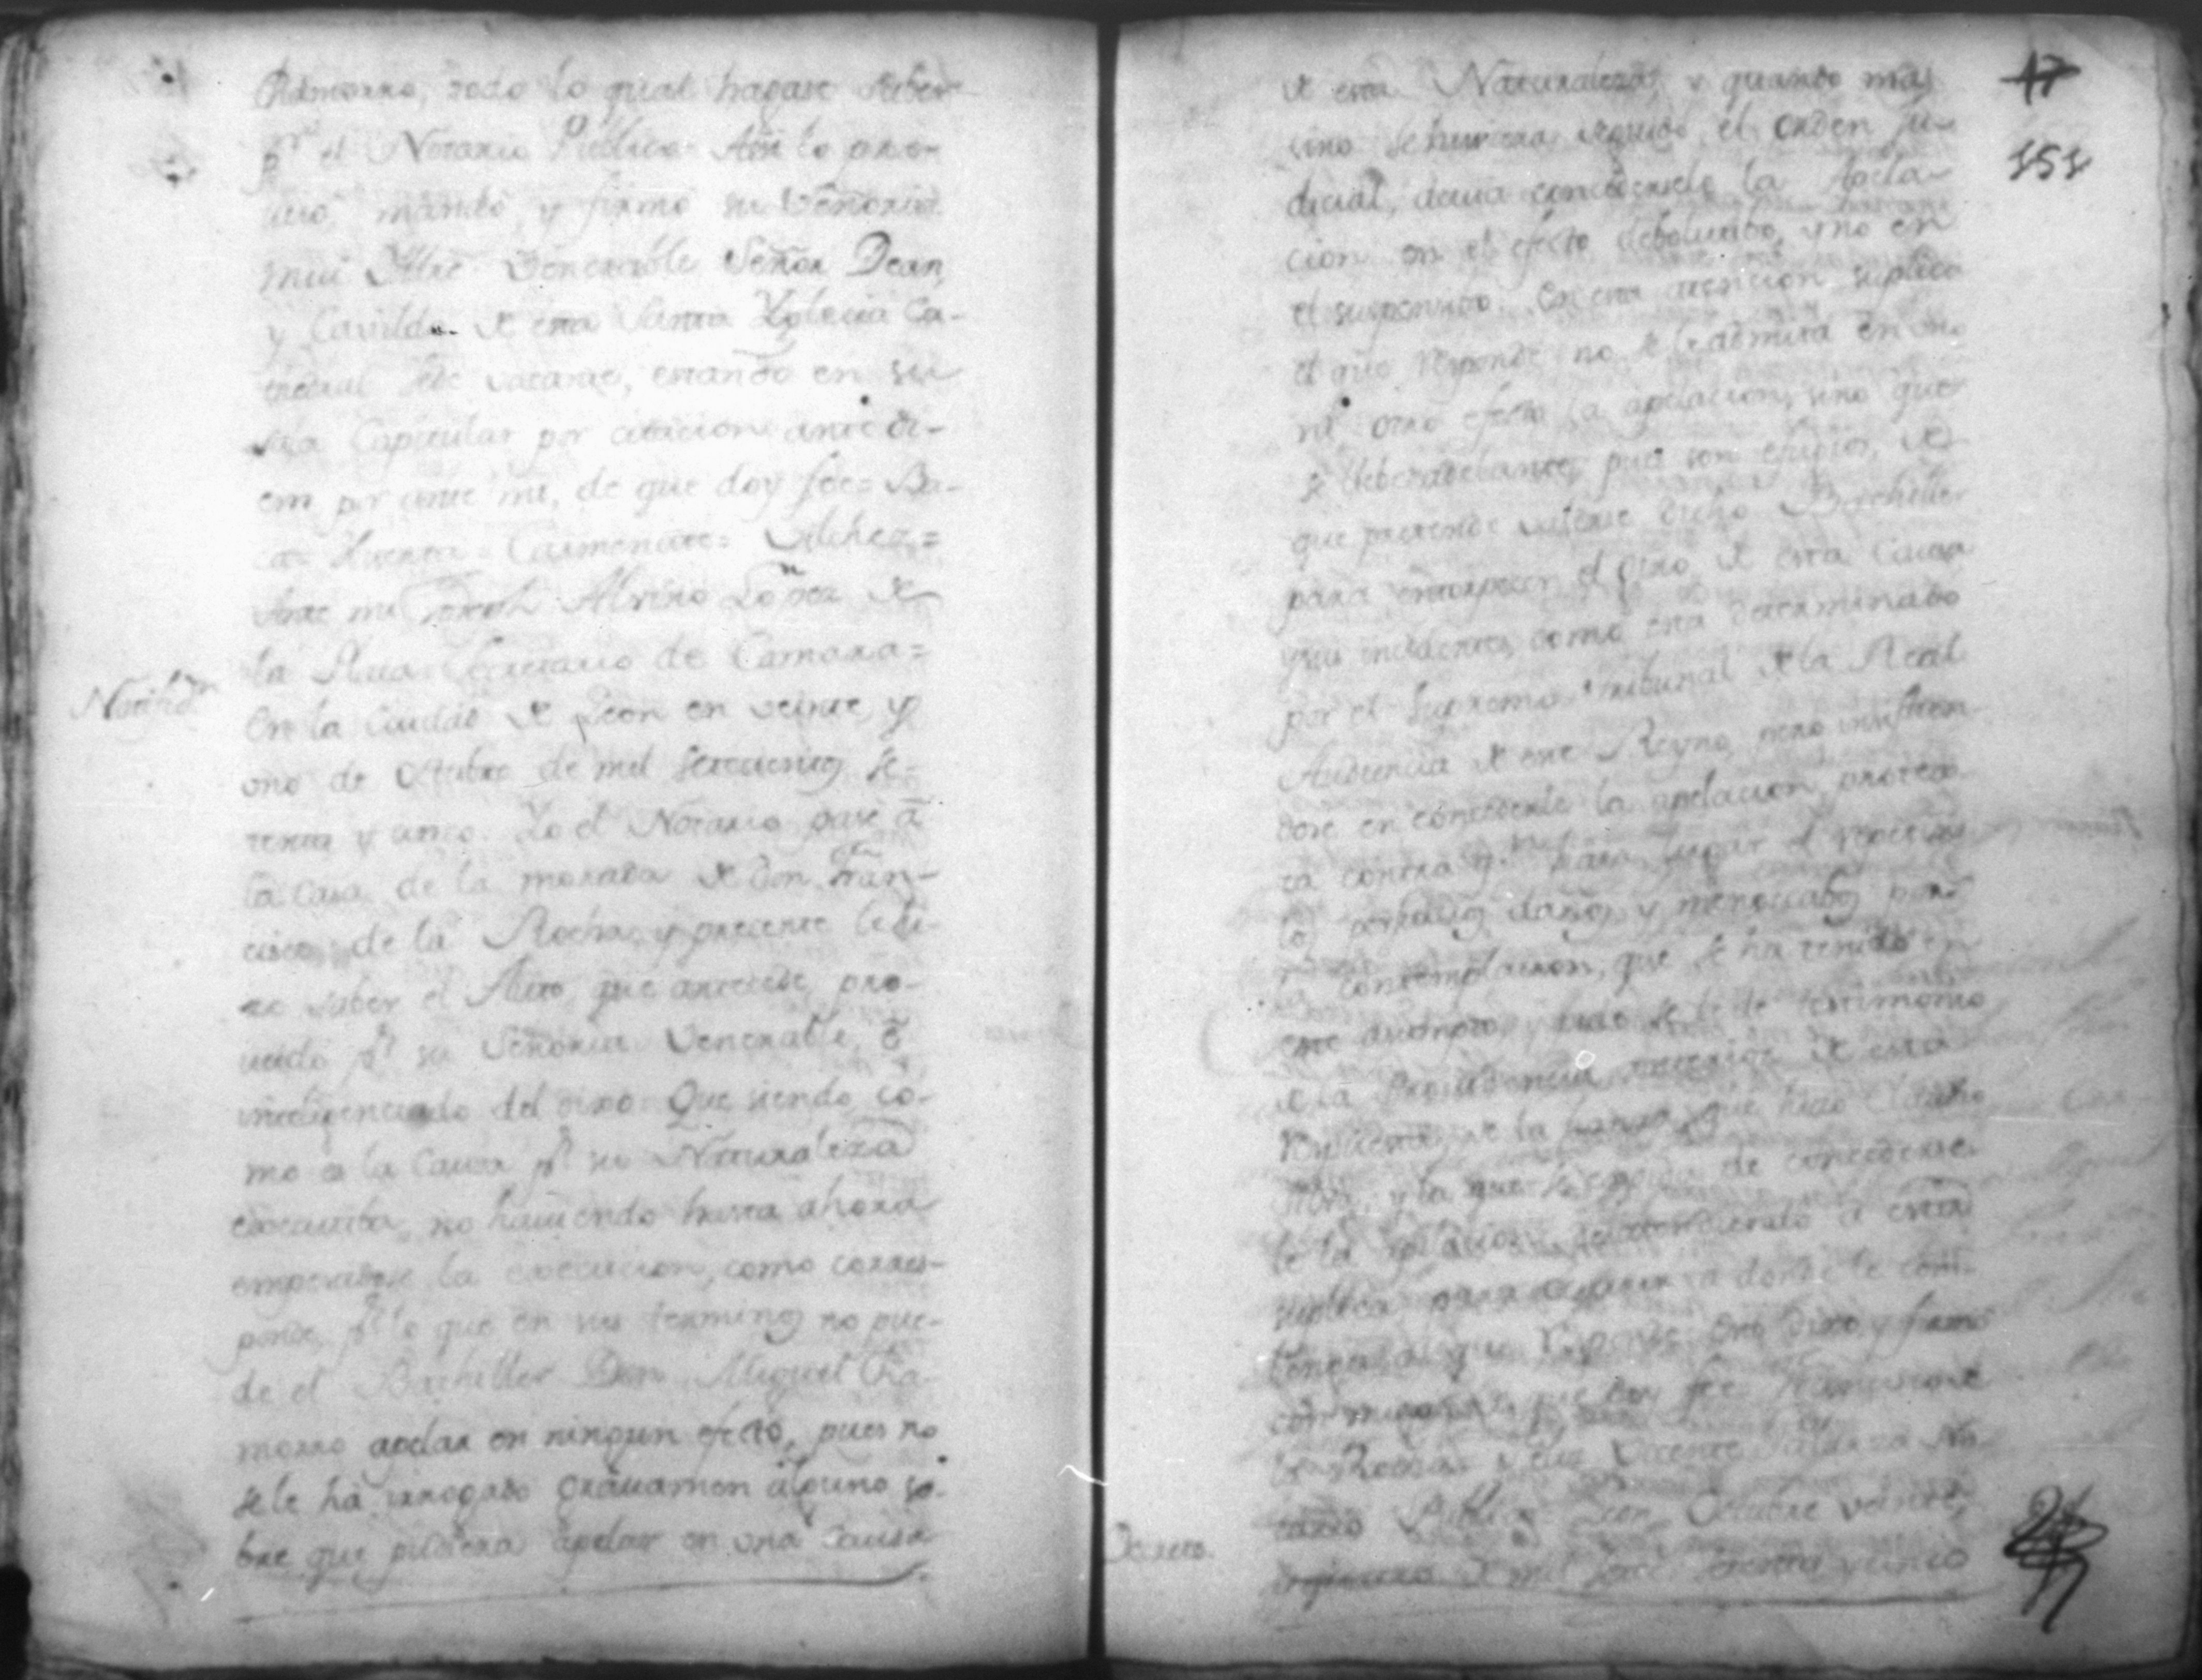 Chamorro, todo lo qual hagase saber
pr el Notario Publico. Assi lo pro-
veió, mandó, y firmó su Señoria
mui Iltre Venerable Señor Dean,
y Cavildo de esta Santa Yglesia Ca-
thedral Sede vacante, estando en su
sala Capitular por citacion ante di-
em por ante mi, de que doy fee= Ba-
ca= Huerta= Carmenate= Vilchez=
Ante mi Joseph Alvino Lopez de
la Plata Secretario de Camara=
Notificⁿ
En la Ciudad de Leon en veinte y
uno de Octubre de mil setecientos se-
tenta y cinco. Yo el Notario pasé á
la casa de la morada de Don Fran-
cisco de la Rocha, y presente le hi-
ze saber el Auto que antecede pro-
veido pr su Señoria Venerable, é
inteligenciado del dixo: Que siendo co-
mo es la Causa pr su Naturaleza
executiba, no haviendo hasta ahora
empezadose la execucion, como corres-
ponde, pr lo que en sus terminos no pue-
de el Bachiller Don Miguel Cha-
morro apelar en ningun efecto, pues no
se le ha irrogado gravamen alguno so-
bre que pudiera apelar en una Causa
17
151
de esta Naturaleza, y quando mas
sino se huviera seguido el orden ju-
dicial, devia concedersele la Apela-
cion en el efecto debolutibo, y no en
el suspensibo. En esta atencion suplica
el que responde no se le admita en uno
ni otro efecto la apelacion, sino que
se lleve adelante, pues son efugios, de
que pretende valerse dicho Bachiller
para entorpecer el giro de esta Causa
y sus incidentes, como está determinado
por el Supremo Tribunal de la Real
Audiencia de este Reyno, pero insistien-
dose en concederle la apelacion, protes-
ta contra qn haia lugar el
los perjuicios daños, y menoscabos por
la contemplacion, que se ha tenido en
este asumpto, y pide se le dé testimonio
de la Providencia anterior de esta
respuesta, de la que hizo
y la que de concederse-
le la apelacion á esta
suplica para ocurrir a donde le com-
benga. Esto que responde dixo y firmó
conmigo de que doy fee= Francisco de
la Rocha= Vicente No-
tario Publico=
Decreto.
Leon, Octubre veinte,
y de mil setec. setenta y cinco